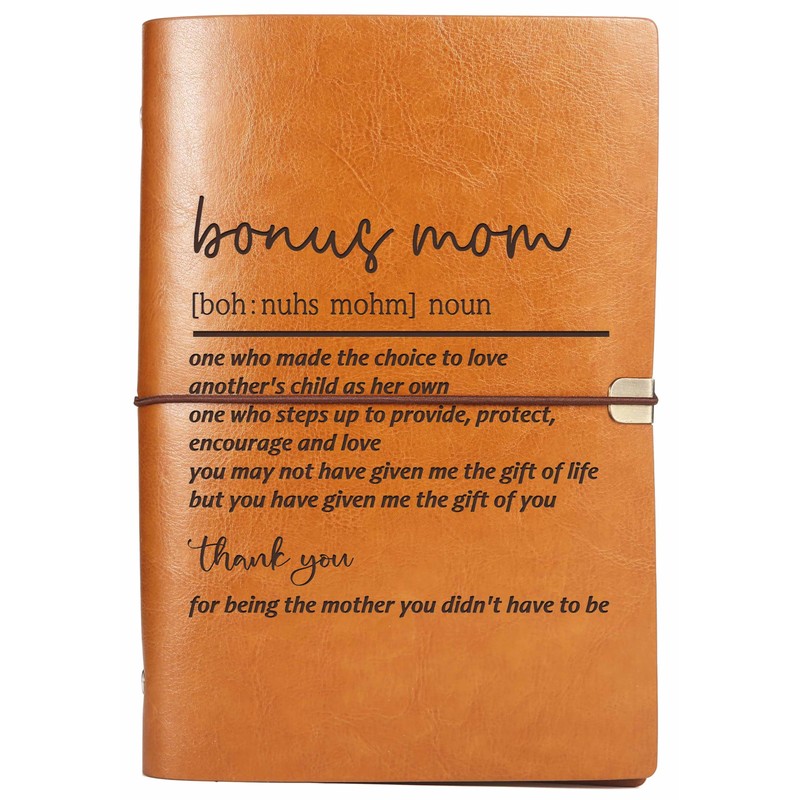 bonus mom
[boh:nuhs mohm] noun
one who made the choice to love
another's child as her own
one who steps up to provide, protect,
encourage and love
you may not have given me the gift of life
but you have given me the gift of you
thank you
for being the mother you didn't have to be